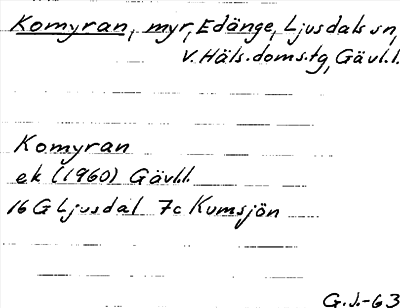 Komyran, myr, Edänge, Ljusdals sn,
V. Häls. doms.tg, Gävl.l.
Komyran
ek (1960) Gävl.l.
16 G Ljusdal 7c Kumsjön
G.J.-63